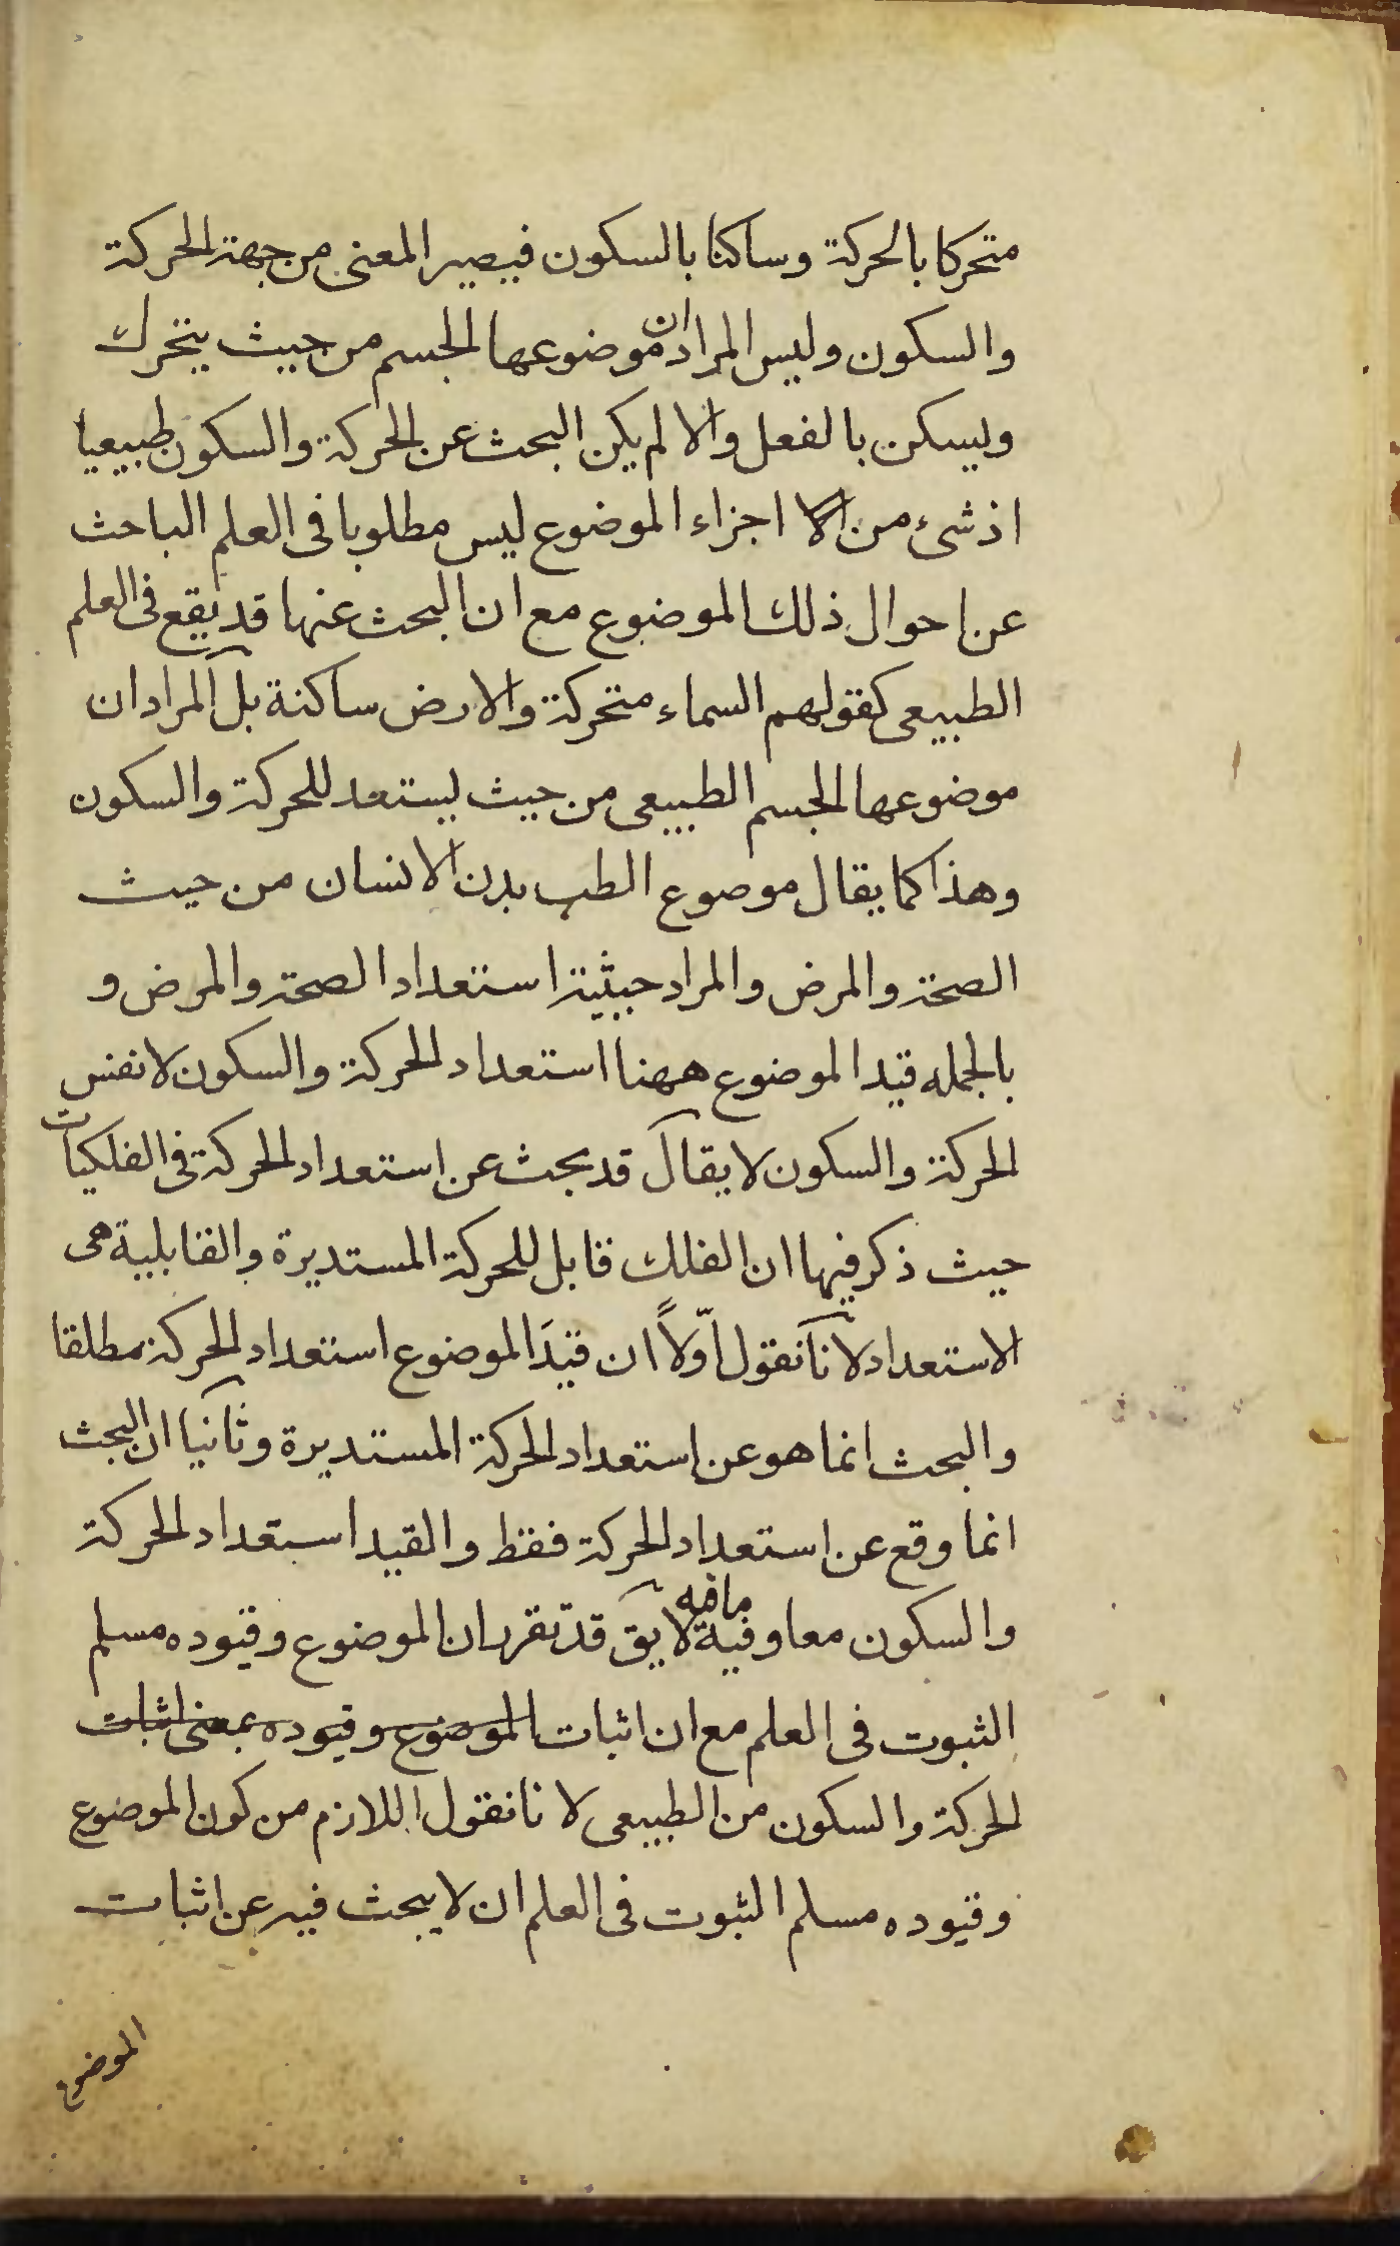 متحركا بالحركة وساكنا بالسكون فيصير المعنى من جهة الحركة
والسكون وليس المراد ان موضوعها الجسم من حيث يتحرك
ويسكن بالفعل والا لم يكن البحث عن الحركة والسكون طبيعيا
اذ شىء من الا اجزاء الموضوع ليس مطلوبا فى العلم الباحث
عن احوال ذلك الموضوع مع ان البحث عنها قد يقع فى العلم
الطبيعى كقولهم السماء متحركة والارض ساكنة بل المراد ان
موضوعها الجسم الطبيعى من حيث يستعد للحركة والسكون
وهذا كما يقال موضوع الطب بدن الانسان من حيث
الصحة والمرض والمراد حيثية استعداد الصحة والمرض و
بالجمله قيد الموضوع ههنا استعداد الحركة والسكون لا نفس
الحركة والسكون لا يقال قد بحث عن استعداد الحركة فى الفلكيات
حيث ذكر فيها ان الفلك قابل للحركة المستديرة والقابلية هى
الاستعداد لانا نقول اوّلاً ان قيدَ الموضوع استعداد الحركة مطلقا
والبحث انما هو عن استعداد الحركة المستديرة وثانيا ان البحث
انما وقع عن استعداد الحركة فقط والقيد استعداد الحركة
والسكون معا وفيه ما فيه لا يق قد تقرر ان الموضوع وقيوده مسلم
الثبوت فى العلم مع ان اثبات الموضوع وقيوده بمعنى اثبات
الحركة والسكون من الطبيعى لانا نقول اللازم من كون الموضوع
وقيوده مسلم الثبوت فى العلم ان لا يبحث فيه عن اثبات
الموضوع